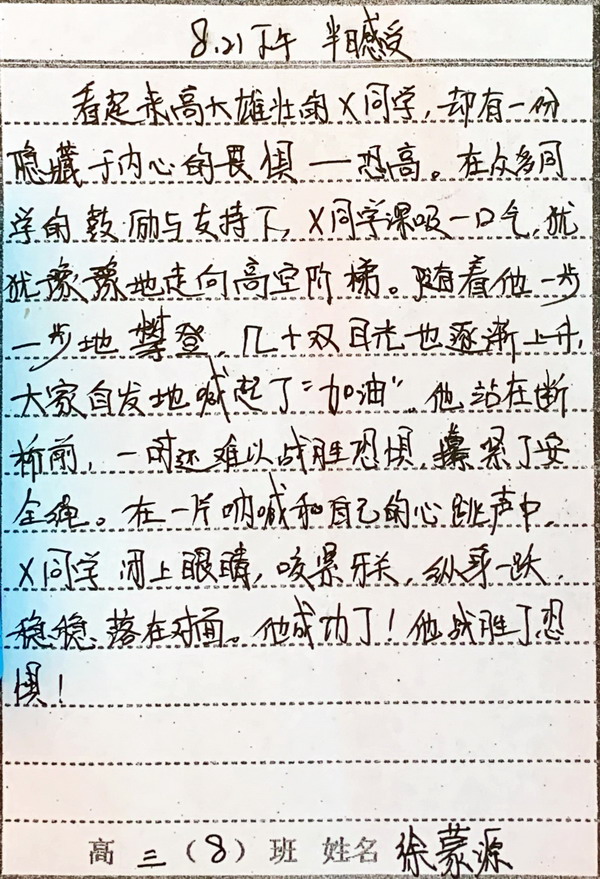 8.21下午 半日感受
看起来高大雄壮的X同学,却有一份
隐藏于内心的畏惧——恐高。在众多同
学的鼓励与支持下,X同学深吸一口气,犹
犹豫豫地走向高空阶梯。随着他一步
一步地攀登,几十双目光也逐渐上升,
大家自发地喊起了“加油”。他站在断
桥前,一时还难以战胜恐惧,攥紧了安
全绳。在一片呐喊和自己的心跳声中,
X同学闭上眼睛,咬紧牙关,纵身一跃,
稳稳落在对面。他成功了!他战胜了恐
惧!
高三(8)班 姓名 徐蒙源